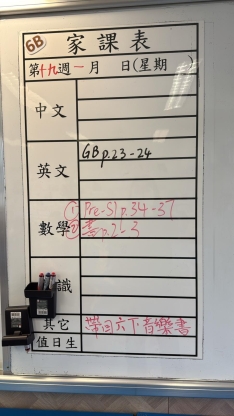 6B
家課表
第十九週一月 日(星期 )
中文
英文 GB p.23-24
數學 ① Pre-S1 p.34-37
② 書p.2-3
識
其它 帶回六下音樂書
值日生